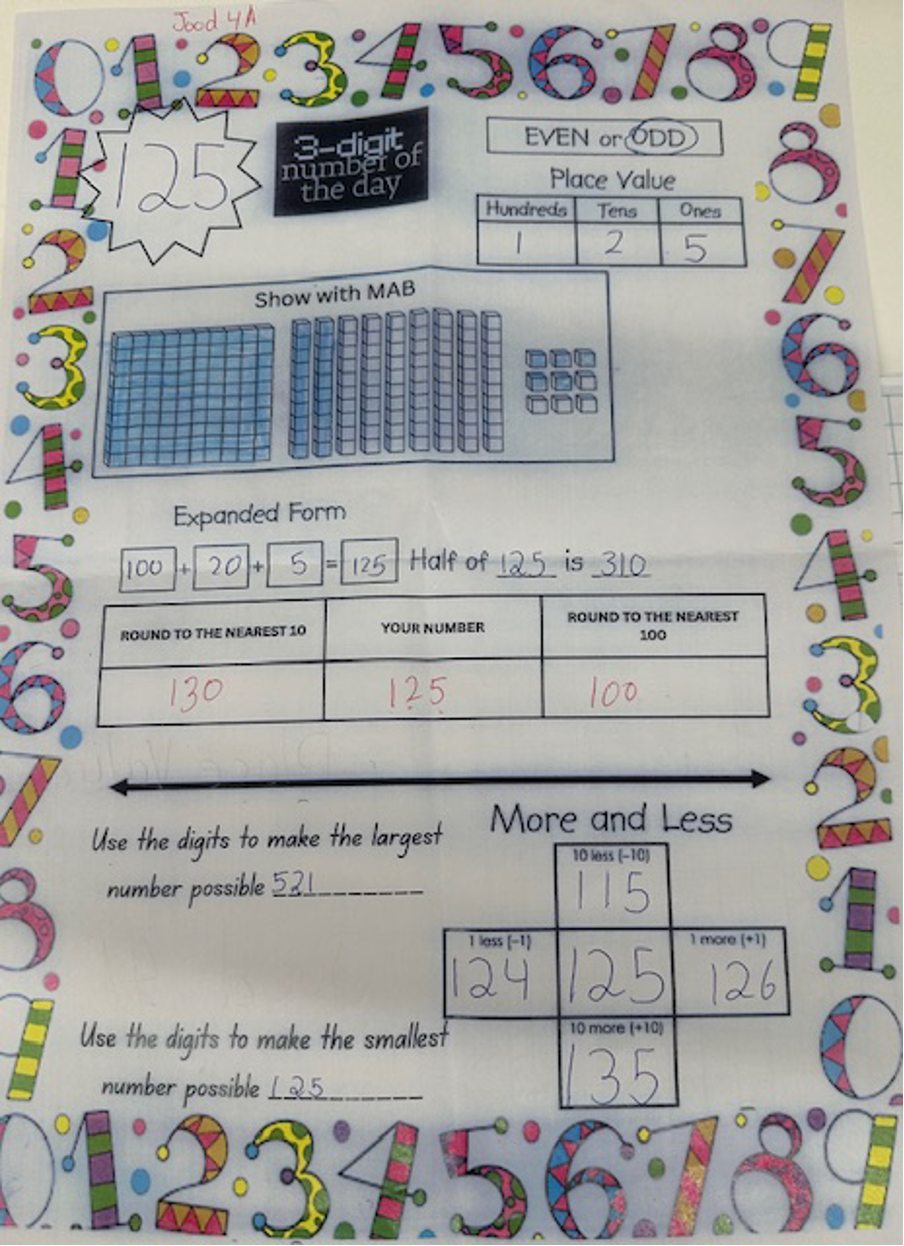 Jood 4A
0 1 2 3 4 5 6 7 8 9
125
3-digit
number of
the day
EVEN or ODD
Place Value
Hundreds Tens Ones
1 2 5
Show with MAB
Expanded Form
100 + 20 + 5 = 125 Half of 125 is 310
ROUND TO THE NEAREST 10 YOUR NUMBER ROUND TO THE NEAREST
100
130 125 100
Use the digits to make the largest
number possible 521
More and Less
10 less (-10)
115
1 less (-1) 1 more (+1)
124 125 126
10 more (+10)
135
Use the digits to make the smallest
number possible 125
1
2
3
4
5
6
7
8
9
8
7
6
5
4
3
2
1
0
0 1 2 3 4 5 6 7 8 9